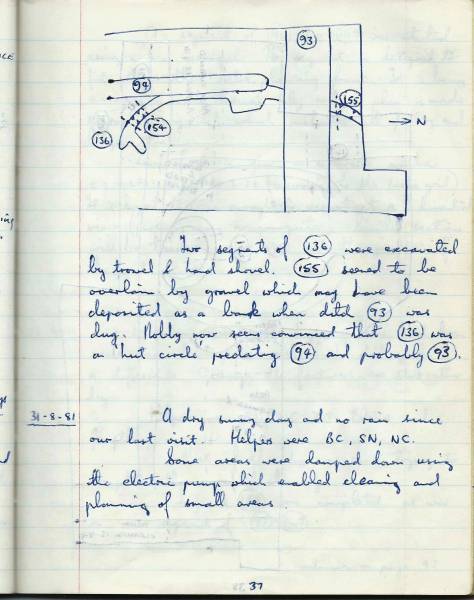 93
94
155
N
136
154
Two segments of 136 were excavated
by trowel & hand shovel. 155 seemed to be
overlain by gravel which may have been
deposited as a bank when ditch 93 was
dug. Nobby now seems convinced that 136 was
a 'hut circle' predating 94 and probably 93.
31-8-81
A dry sunny day and no rain since
our last visit. Helpers were BC, SN, NC.
Some areas were damped down using
the electric pump which enabled cleaning and
planning of small areas.
37